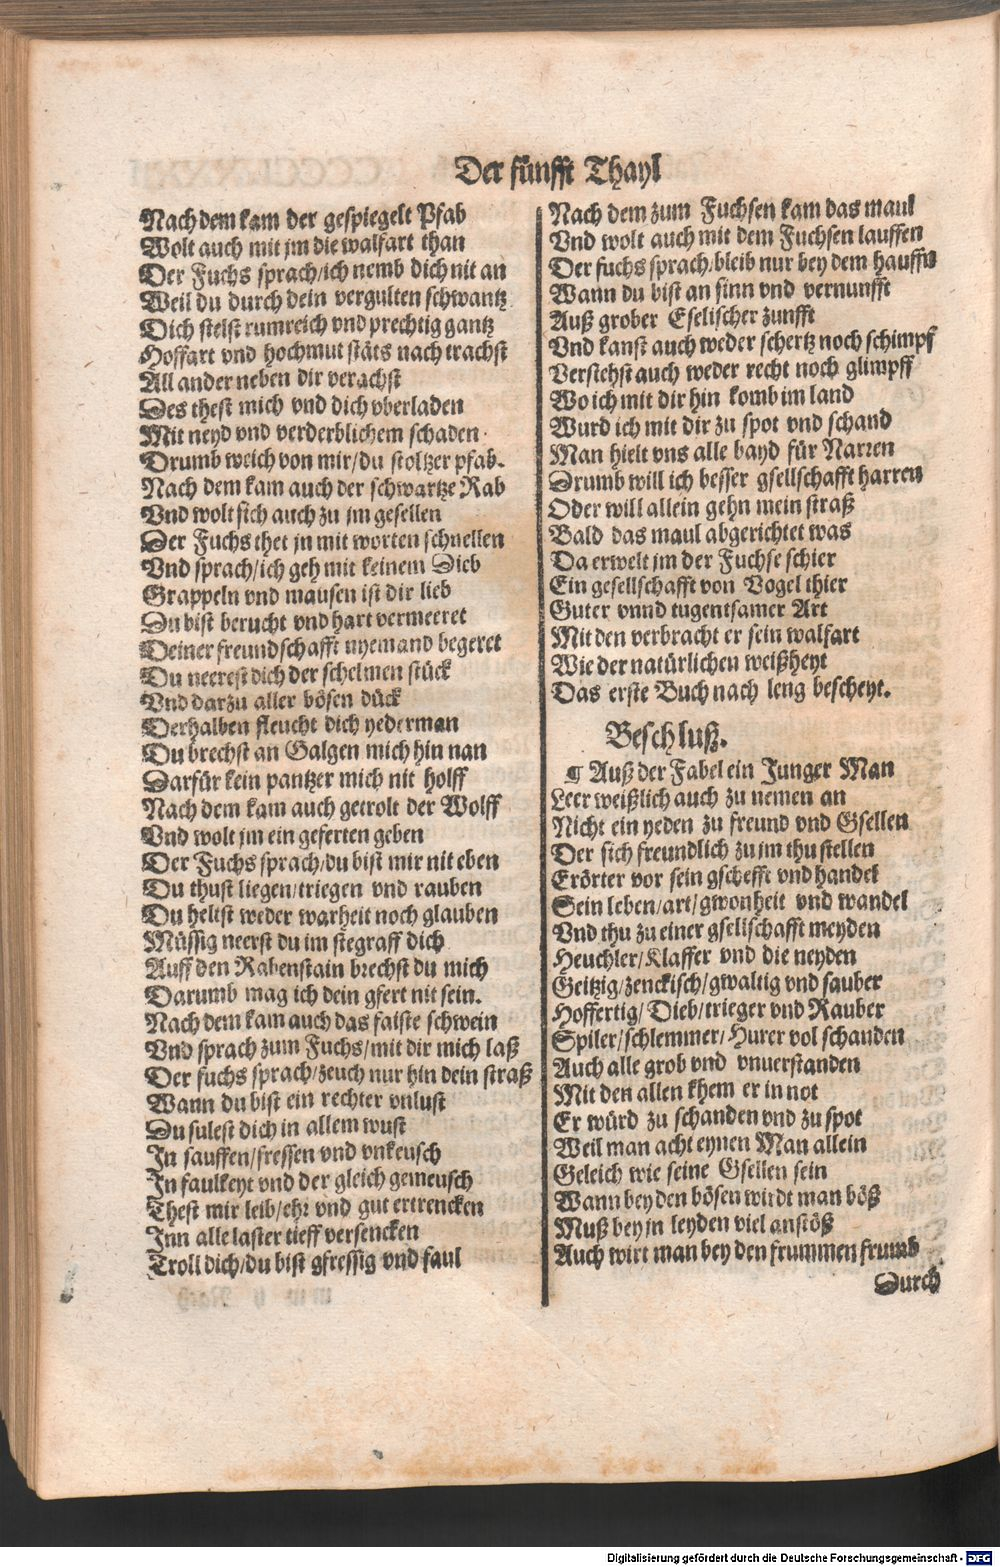 Der fünfft Thayl
Nach dem kam der gespiegelt Pfab
Wolt auch mit jm die walfart than
Der Fuchs sprach/ich nemb dich nit an
Weil du durch dein vergulten schwantz
Dich stelst rumreich vnd prechtig gantz
Hoffart vnd hochmut stäts nach trachst
All ander neben dir verachst
Des thest mich vnd dich vberladen
Mit neyd vnd verderblichem schaden.
Drumb weich von mir/du stoltzer pfab.
Nach dem kam auch der schwartze Rab
Vnd wolt sich auch zu jm gesellen
Der Fuchs thet jn mit worten schnellen
Vnd sprach/ich geh mit keinem Dieb
Grappeln vnd mausen ist dir lieb
Du bist berucht vnd hart vermeeret
Deiner freundschafft nyemand begeret
Du neerest dich der schelmen stück
Vnd darzu aller bösen dück
Derhalben fleucht dich yederman
Du brechst an Galgen mich hin nan
Darfür kein pantzer mich nit holff
Nach dem kam auch getrolt der Wolff
Vnd wolt jm ein geferten geben
Der Fuchs sprach/du bist mir nit eben
Du thust liegen/triegen vnd rauben
Du heltst weder warheit noch glauben
Müssig neerst du im stegraff dich
Auff den Rabenstain brechst du mich
Darumb mag ich dein gfert nit sein.
Nach dem kam auch das faiste schwein
Vnd sprach zum Fuchs/mit dir mich laß
Der fuchs sprach/zeuch nur hin dein straß
Wann du bist ein rechter vnlust
Du sulest dich in allem wust
In sauffen/fressen vnd vnkeusch
In faulkeyt vnd der gleich gemeusch
Thest mir leib/ehr vnd gut ertrencken
Inn alle laster tieff versencken
Troll dich/du bist gfressig vnd faul
Nach dem zum Fuchsen kam das maul
Vnd wolt auch mit dem Fuchsen lauffen
Der fuchs sprach/bleib nur bey dem hauffn
Wann du bist an sinn vnd vernunfft
Auß grober Eselischer zunfft
Vnd kanst auch weder schertz noch schimpf
Verstehst auch weder recht noch glimpff
Wo ich mit dir hin komb im land
Wurd ich mit dir zu spot vnd schand
Man hielt vns alle bayd für Narren
Drumb will ich besser gsellschafft harren
Oder will allein gehn mein straß
Bald das maul abgerichtet was
Da erwelt jm der Fuchse schier
Ein gesellschafft von Vogel thier
Guter vnnd tugentsamer Art
Mit den verbracht er sein walfart
Wie der natürlichen weißheyt
Das erste Buch nach leng bescheyt.
Beschluß.
¶ Auß der Fabel ein Junger Man
Leer weißlich auch zu nemen an
Nicht ein yeden zu freund vnd Gsellen
Der sich freundlich zu jm thu stellen
Erörter vor sein gschefft vnd handel
Sein leben/art/gwonheit vnd wandel
Vnd thu zu einer gsellschafft meyden
Heuchler/Klaffer vnd die neyden
Geitzig/zenckisch/gwaltig vnd sauber
Hoffertig/Dieb/trieger vnd Rauber
Spiler/schlemmer/Hurer vol schanden
Auch alle grob vnd vnuerstanden
Mit den allen khem er in not
Er würd zu schanden vnd zu spot
Weil man acht eynen Man allein
Geleich wie seine Gsellen sein
Wann bey den bösen wirdt man böß
Muß bey jn leyden viel anstöß
Auch wirt man bey den frummen frumb
Durch
Digitalisierung gefördert durch die Deutsche Forschungsgemeinschaft - DFG